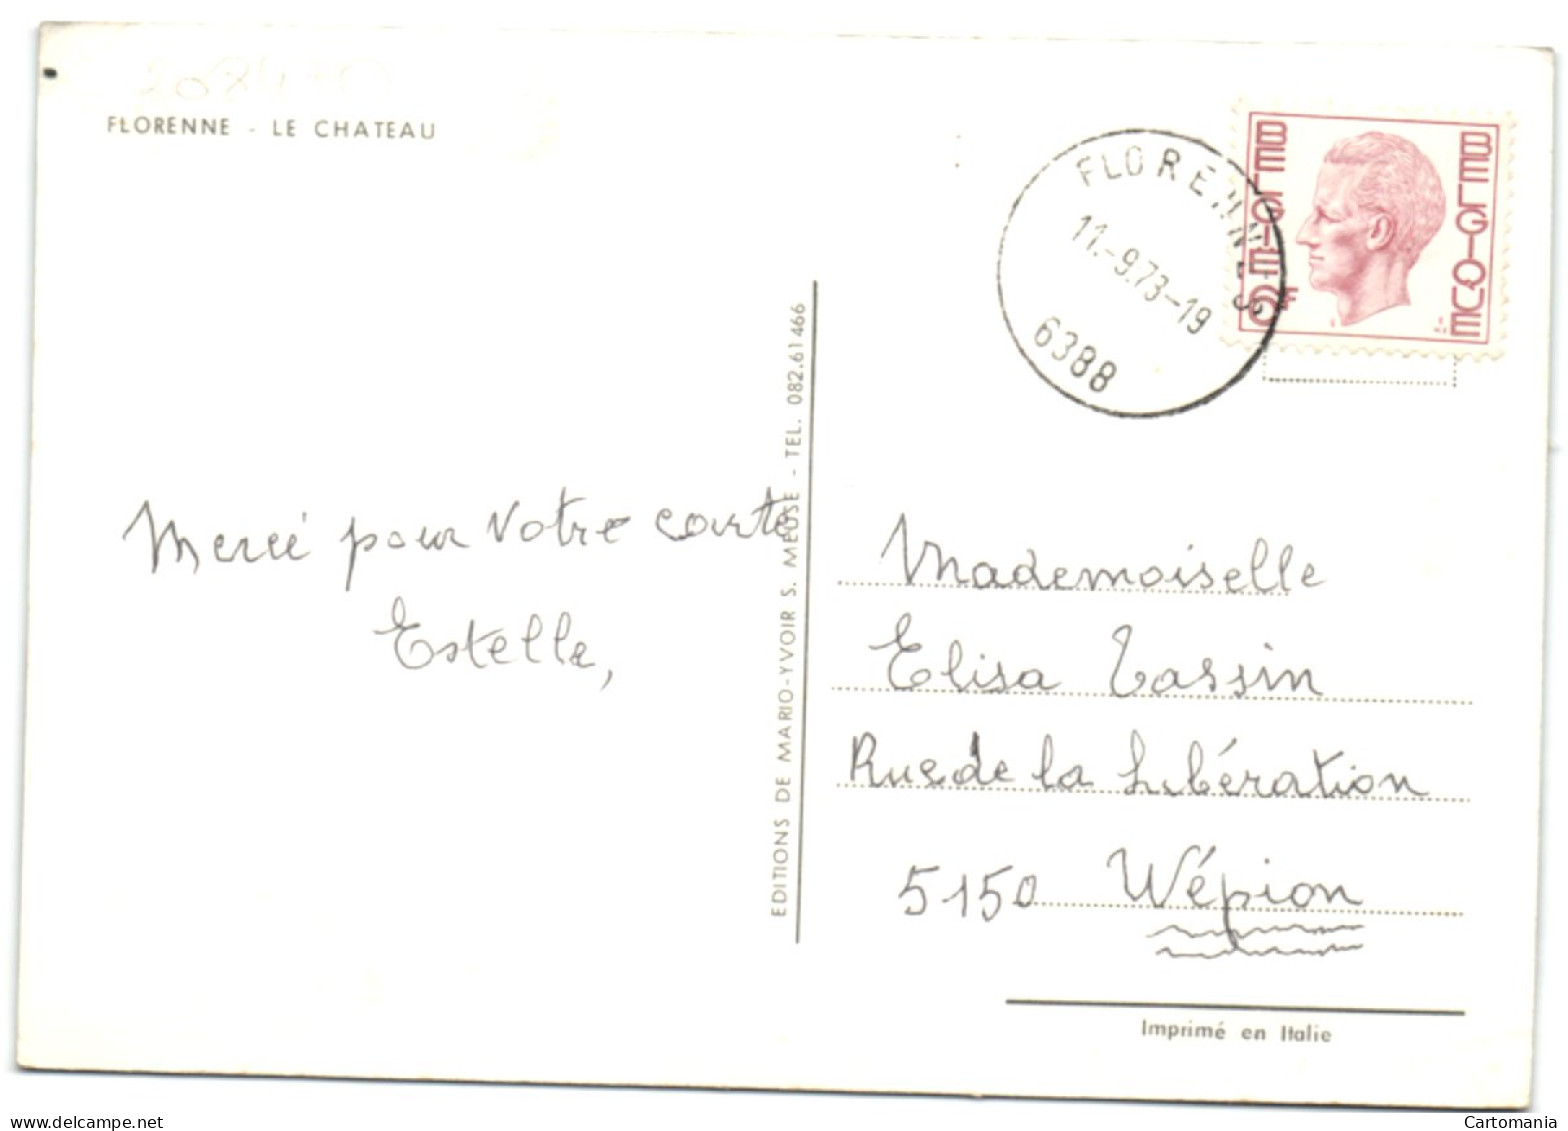 FLORENNE - LE CHATEAU
BELGIE 6F
BELGIQUE
FLORENNES
11.-9.73-19
6388
EDITIONS DE MARIO-YVOIR S. MEUSE - TEL. 082.61466
Mercie pour votre carte
Estelle,
Mademoiselle
Elisa Tassin
Rue de la Libération
5150 Wépion
Imprimé en Italie
www.delcampe.net
Cartomania